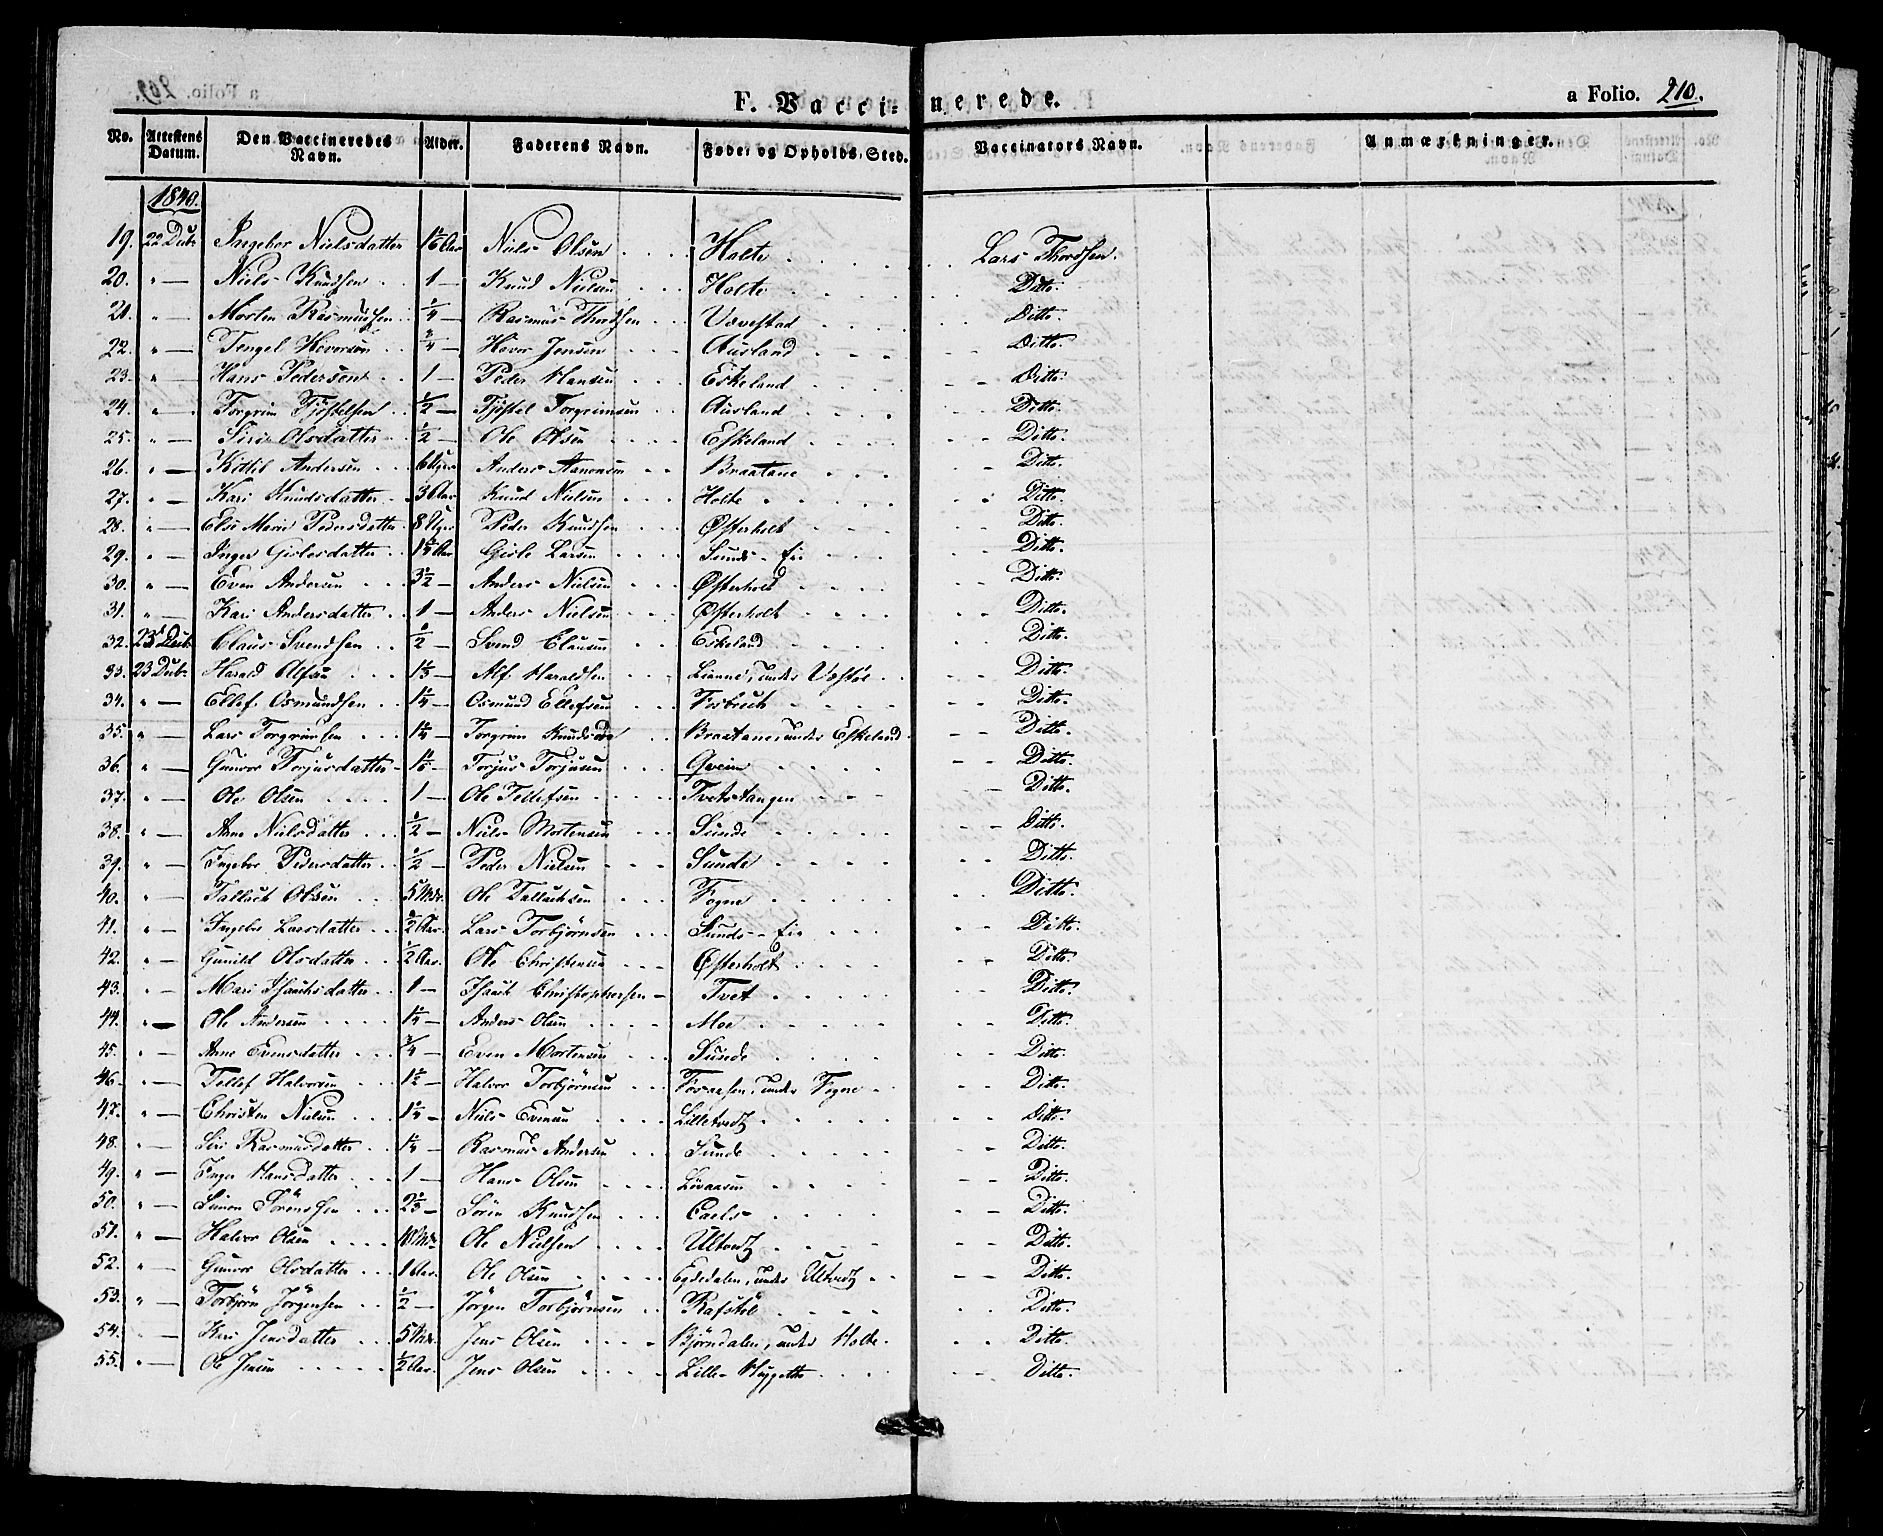 F. Vaccinerede. a Folio. 210.
No. Attestens Datum. Den Vaccineredes Navn. Alder. Faderens Navn. Føde- og Opholds-Sted. Vaccinators Navn. Anmærkninger.
1840.
19. 22 Debr Ingebor Nielsdatter Aar Niels Olsen Holte Lars Thordsen.
20. " — Niels Knudsen 1 — Knud Nielsen Holte Ditto.
21. " — Morten Rasmussen — Rasmus Thordsen Vævestad Ditto.
22. " — Tengel Hovorsen — Hovor Jensen Ausland Ditto.
23. " — Hans Pedersen 1 — Peder Hansen Eskeland Ditto.
24. " — Torgrim Tjøstelsen 1/2 — Tjøstel Torgrimsen Ausland Ditto.
25. " — Siri Olsdatter 1/2 — Ole Olsen Eskeland Ditto.
26. " — Kittil Andersen 6 Uger Anders Aanonsen Braatane Ditto.
27. " — Kari Knudsdatter 3 Aar Knud Nielsen Holte Ditto.
28. " — Else Marie Pedersdatter 8 Uger Peder Knudsen Østerholt Ditto.
29. " — Inger Gislesdatter Aar Gisle Larsen Sunds-Eie Ditto.
30. " — Even Andersen 3 1/2 — Anders Nielsen Østerholt Ditto.
31. " — Kari Andersdatter 1 — Anders Nielsen Østerholt Ditto.
32. 23 Debr Claus Svendsen 1/2 — Svend Clausen Eskeland Ditto.
33. 23 Debr Harald Alfsen — Alf Haraldsen Lianne, under Ditto.
34. " — Ellef Osmundsen 1 1/4 — Osmund Ellefsen Fosbræk Ditto.
35. " — Lars Torgrimsen 1 1/4 — Torgrim Braatane, under Eskeland Ditto.
36. " — Gunvor Torjusdatter — Torjus Torjusen Qveim Ditto.
37. " — Ole Olsen 1 — Ole Tellefsen Tvetstangen Ditto.
38. " — Anne Nielsdatter 1/2 — Niels Mortensen Sunde Ditto.
39. " — Ingebor Pedersdatter 1/2 — Peder Nielsen Sunde Ditto.
40. " — Tallack Olsen 5 Mdr. Ole Tallacksen Fogne Ditto.
41. " — Ingebor Larsdatter Aar. Lars Torbjørnsen Sunds-Eie Ditto.
42. " — Gunild Olsdatter 1/2 Aar. Ole Christensen Østerholt Ditto.
43. " — Mari Isaachsdatter 1 — Isaach Christophersen Tvet Ditto.
44. " — Ole Andersen 1 1/4 — Anders Olsen Moe Ditto.
45. " — Anne Evensdatter 3/4 — Even Mortensen Sunde Ditto.
46. " — Tellef Halvorsen 1 1/2 — Halvor Torbjørnsen under Fogne Ditto.
47. " — Christen Nielsen 1 1/4 — Niels Evensen Lilletvedt Ditto.
48. " — Siri Rasmusdatter 1 1/4 — Rasmus Andersen Sunde Ditto.
49. " — Inger Hansdatter 1 — Hans Olsen Løvaasen Ditto.
50. " — Simon Sørensen — Sören Knudsen Caels Ditto.
51. " — Halvor Olsen Mdr Ole Nielsen Ultvedt Ditto.
52. " — Gunvor Olsdatter 1 Aar. Ole Olsen Egdedalen, under Ultvedt Ditto.
53. " — Torbjörn Jörgensen 1/2 — Jörgen Torbjørnsen Rafstöl Ditto.
54. " — Kari Jensdatter 5 Mdr. Jens Olsen Bjørndalen, under Holte Ditto.
55. " — Ole Jensen 1/2 Aar. Jens Olsen Lille- Ditto.